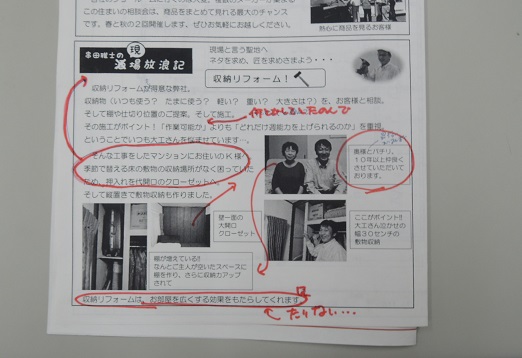 この住まいの相談会は、商品をまとめて見れる最大のチャンス
です。春と秋の2回開催します。ぜひお気軽にお越しください。
熱心に商品を見るお客様
現
現場と言う聖地へ
ネタを求め、匠を求めさまよう・・・
収納リフォーム!
収納リフォームが得意な弊社。
収納物(いつも使う? たまに使う? 軽い? 重い? 大きさは?)を、お客様と相談。
そして棚や仕切り位置のご提案。そして施工。
その施工がポイント!「作業可能か」よりも「どれだけ能力を上げられるのか」を重視。
ということでいつも大工さんを悩ませています。
そんな工事をしたマンションにお住いのK様へ
季節で替える床の敷物の収納場所がなく困っていた
ため、押入れを代開口のクローゼットへ。
そして縦置きで敷物収納も作りました。
奥様とパチリ。
10年以上仲良く
させていただいて
おります。
壁一面の
大開口
クローゼット
ここがポイント!!
大工さん泣かせの
幅30センチの
敷物収納
棚が増えている!!
なんとご主人が空いたスペースに
棚を作り、さらに収納力アップ
されて
収納リフォームは、お部屋を広くする効果をもたらしてくれます
たりない…